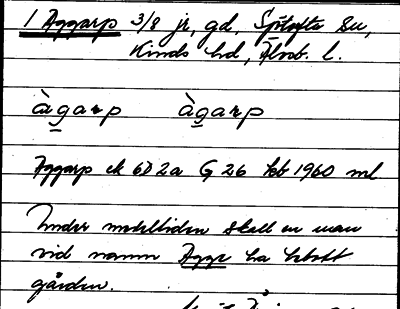 1 Aggarp 3/8 jr, gd, Sjötofta sn,
Kinds hd, Älvsb. l.
àgarp àgarp
Aggarp ek 6D2a G 26 feb 1960 ml
Under medeltiden skall en man
vid namn Agge ha bebott
gården.